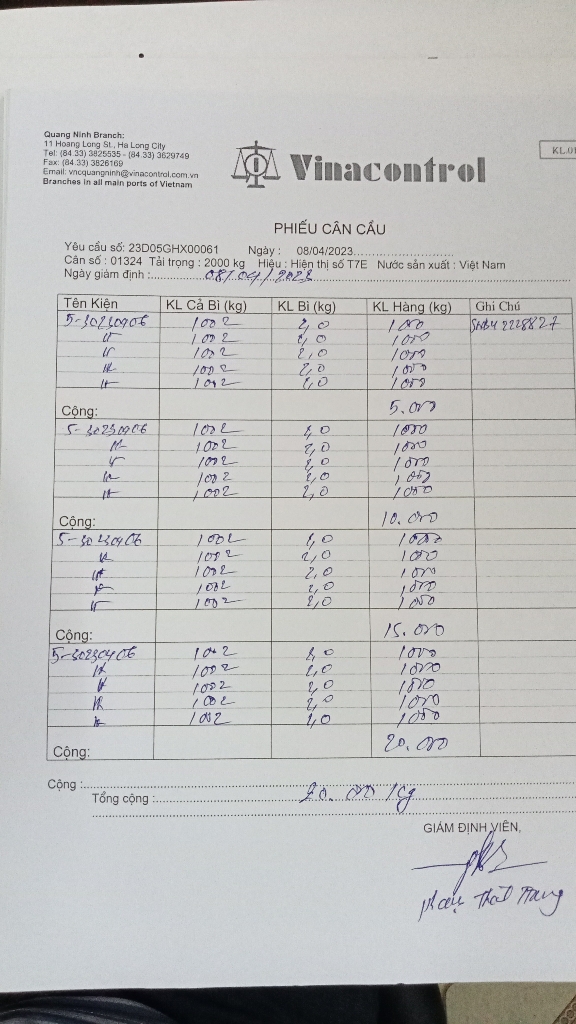 Quang Ninh Branch:
11 Hoang Long St., Ha Long City
Tel: (84.33) 3825535 - (84.33) 3629749
Fax: (84.33) 3826169
Email: vncquangninh@vinacontrol.com.vn
Branches in all main ports of Vietnam
Vinacontrol
KL.01
PHIẾU CÂN CẦU
Yêu cầu số: 23D05GHX00061 Ngày : 08/04/2023
Cân số : 01324 Tải trọng : 2000 kg Hiệu : Hiện thị số T7E Nước sản xuất : Việt Nam
Ngày giám định : 08/04/2023
Tên Kiện KL Cả Bì (kg) KL Bì (kg) KL Hàng (kg) Ghi Chú
5-30230406 1002 2,0 1000
1002 2,0 1000
1002 2,0 1000
1002 2,0 1000
1002 2,0 1000
Cộng: 5.000
5-30230406 1002 2,0 1000
1002 2,0 1000
1002 2,0 1000
1002 2,0 1000
1002 2,0 1000
Cộng: 10.000
5-30230406 1002 2,0 1000
1002 2,0 1000
1002 2,0 1000
1002 2,0 1000
1002 2,0 1000
Cộng: 15.000
5-30230406 1002 2,0 1000
1002 2,0 1000
1002 2,0 1000
1002 2,0 1000
1002 2,0 1000
Cộng: 20.000
Cộng :
Tổng cộng : 20.000 kg
GIÁM ĐỊNH VIÊN,